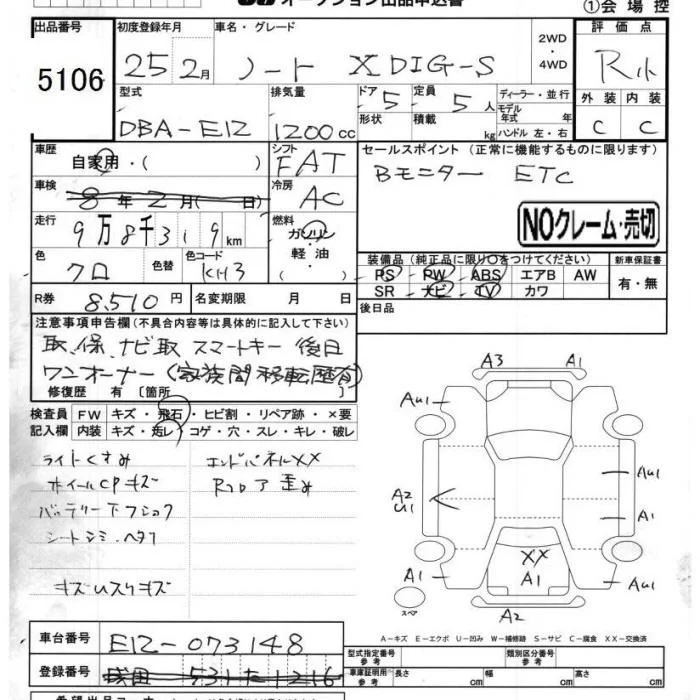 オークション出品申込書
①会場控
出品番号
5106
初度登録年月
25 2月
車名・グレード
ノート X DIG-S
2WD
・
4WD
評価点
R小
外装 内装
C C
型式
DBA-E12
排気量
1200cc
ドア 5
形状
定員 5人
積載 kg
ディーラー・並行
モデル
年式 年
ハンドル 左・右
車歴
自家用・( )
シフト
FAT
セールスポイント (正常に機能するものに限ります)
Bモニター ETC
車検
8年2月( 日)
冷房
AC
NOクレーム・売切
走行
9万8千319km
燃料
ガソリン
軽油
( )
色
クロ
色替
色コード
KH3
装備品(純正品に限り○をつけてください)
PS PW ABS エアB AW
SR ナビ TV カワ
新車保証書
有・無
R券 8,510円
名変期限 月 日
後日品
注意事項申告欄(不具合内容等は具体的に記入して下さい)
取、保、ナビ取 スマートキー 後日
ワンオーナー(家族間移転歴有)
修復歴 有〔箇所 〕
検査員 FW キズ・飛石・ヒビ割・リペア跡・×要
記入欄 内装 キズ・汚レ・コゲ・穴・スレ・キレ・破レ
ライトくすみ
ホイールCPキズ
バッテリー下フショク
シートシミ・ヘタリ
キズUスリキズ
エンドパネルXX
Rフロア歪み
A3 A1
AU1
A2
U1
AU1
A1
XX
A1
A1
AU1
A2
スペア
A-キズ E-エクボ U-凹み W-補修跡 S-サビ C-腐食 XX-交換済
車台番号
E12-073148
登録番号
型式指定番号
参考
類別区分番号
参考
車庫証明用
参考
長さ cm 幅 cm 高さ cm